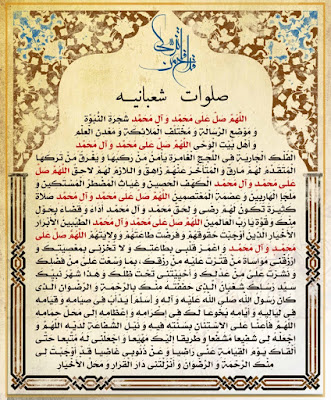 صلوات شعبانیه
اللهم صل علی محمد و آل محمد شجرة النبوة
و موضع الرسالة و مختلف الملائكة و معدن العلم
و أهل بیت الوحی اللهم صل علی محمد و آل محمد
الفلك الجارية فی اللجج الغامرة یأمن من ركبها و یغرق من تركها
المتقدم لهم مارق و المتأخر عنهم زاهق و اللازم لهم لاحق اللهم صل
علی محمد و آل محمد الكهف الحصین و غیاث المضطر المستكین و
ملجإ الهاربین و عصمة المعتصمین اللهم صل علی محمد و آل محمد صلاة
كثیرة تكون لهم رضی و لحق محمد و آل محمد أداء و قضاء بحول
منك و قوة یا رب العالمین اللهم صل علی محمد و آل محمد الطیبین الأبرار
الأخیار الذین أوجبت حقوقهم و فرضت طاعتهم و ولایتهم اللهم صل علی
محمد و آل محمد و اعمر قلبی بطاعتك و لا تخزنی بمعصیتك و
ارزقنی مواساة من قترت علیه من رزقك بما وسعت علی من فضلك
و نشرت علی من عدلك و أحییتنی تحت ظلك و هذا شهر نبیك
سید رسلك شعبان الذی حففته منك بالرحمة و الرضوان الذی
كان رسول الله صلی الله علیه و آله و [سلم] یدأب فی صیامه و قیامه
فی لیالیه و أیامه بخوعا لك فی إكرامه و إعظامه إلی محل حمامه
اللهم فأعنا علی الاستنان بسنته فیه و نیل الشفاعة لدیه اللهم و
اجعله لی شفیعا مشفعا و طریقا إلیك مهیعا و اجعلنی له متبعا حتی
ألقاك یوم القیامة عنی راضیا و عن ذنوبی غاضیا قد أوجبت لی
منك الرحمة و الرضوان و أنزلتنی دار القرار و محل الأخیار